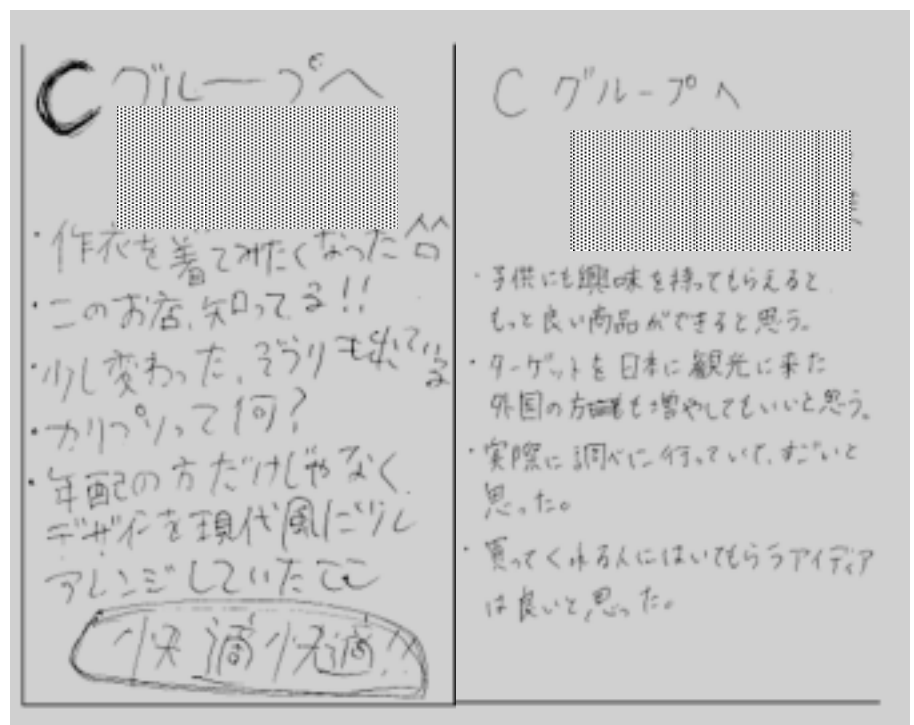 Cグループへ
・作衣を着てみたくなった
・このお店、知ってる!!
・少し変わった、ぞうりも出ている
・カリプソって何?
・年配の方だけじゃなく
デザインを現代風に少し
アレンジしていた
快適快適!!
Cグループへ
・子供にも興味を持ってもらえると
もっと良い商品ができると思う。
・ターゲットを日本に観光に来た
外国の方も増やしてもいいと思う。
・実際に調べに行っていて、すごいと
思った。
・買ってくれる人にはいてもらうアイディア
は良いと思った。